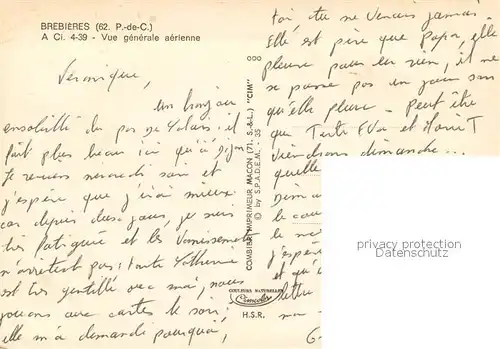 BREBIÈRES (62. P.-de-C.)
A Ci. 4-39 - Vue générale aérienne
Véronique,
Un bonjour
ensoleillé du pas de Calais : il
fait plus beau ici qu'à Dijon
Je reviens mercredi soir et
j'espère que j'irai mieux
car depuis deux jours, je suis
très fatiguée et les vomissements
n'arrêtent pas : tante Catherine
est très gentille avec moi, nous
jouons aux cartes le soir ;
elle m'a demandé pourquoi,
COMBIER IMPRIMEUR MACON (71, S.-&-L.) "CIM"
© by S.P.A.D.E.M. - 35
COULEURS NATURELLES
Cimcolor
H.S.R.
toi, tu ne venais jamais.
Elle est pire que papa, elle
pleure pour un rien, il ne
se passe pas un jour sans
qu'elle pleure - Peut être
que Tante Eva et
viendrons dimanche...
quelle
le
le
j'espère
et qu'
lettre
proxyweb@wanadoo.fr
www.DatensammlerAnsichtskarten.de